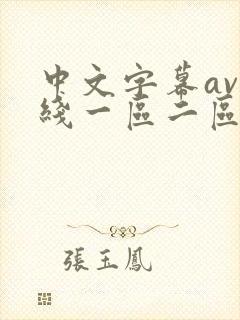 中文字幕av
綫一區二區
張玉鳳